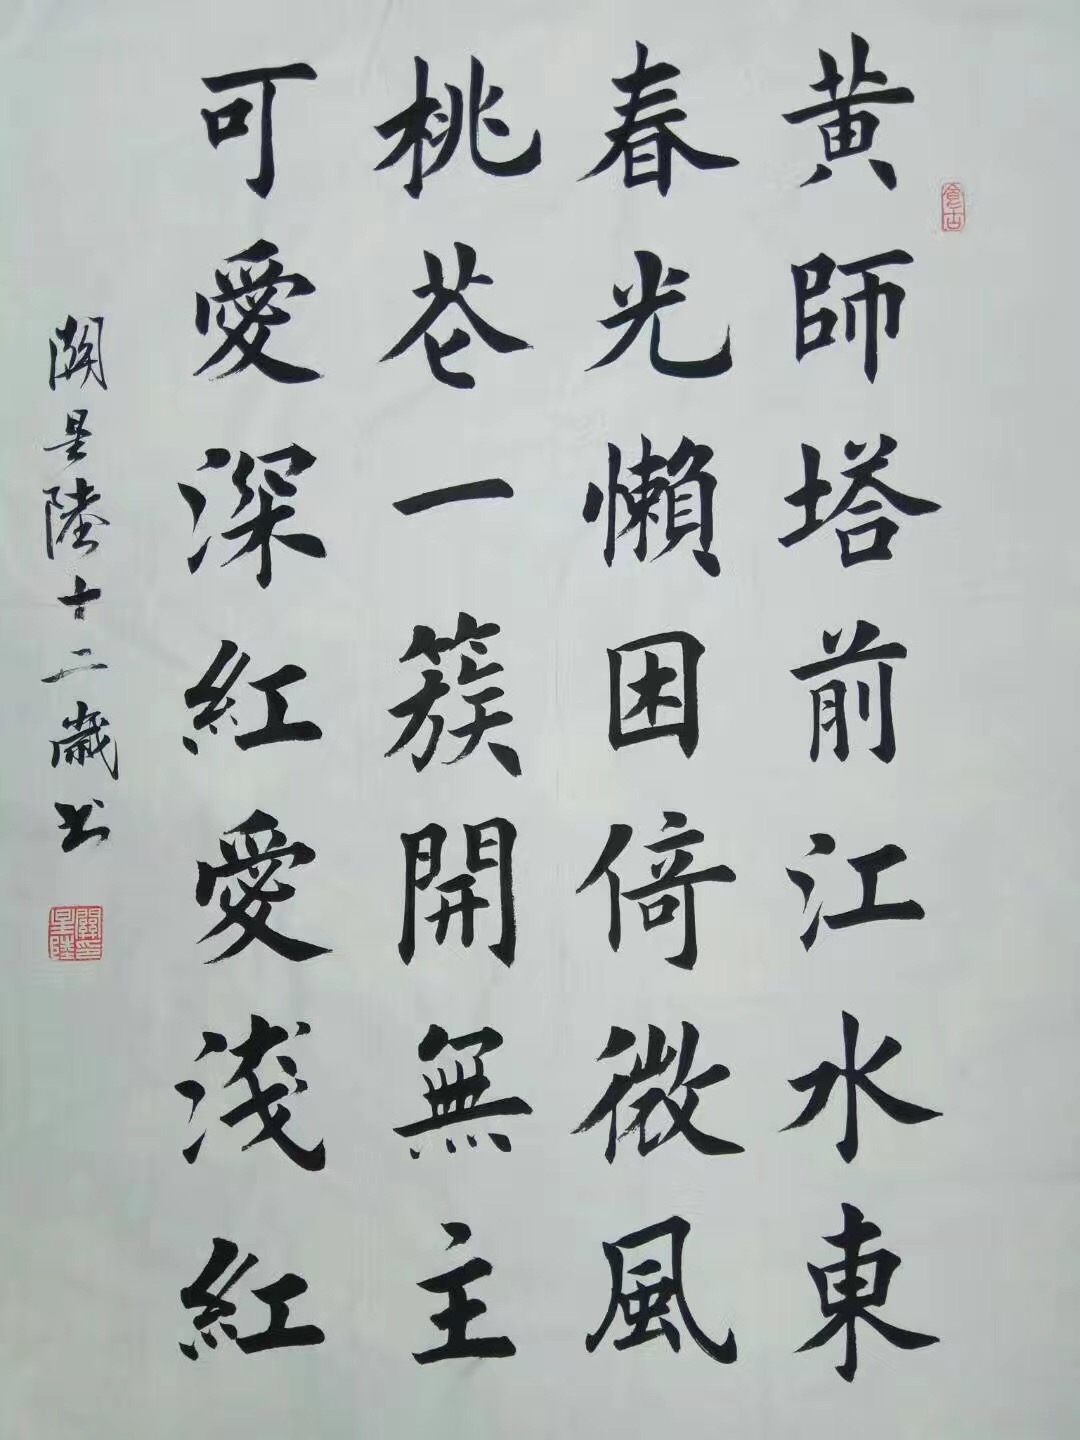 黄師塔前江水東
春光懶困倚微風
桃花一簇開無主
可愛深紅愛淺紅
關星陸十二歲书
關印
星陸